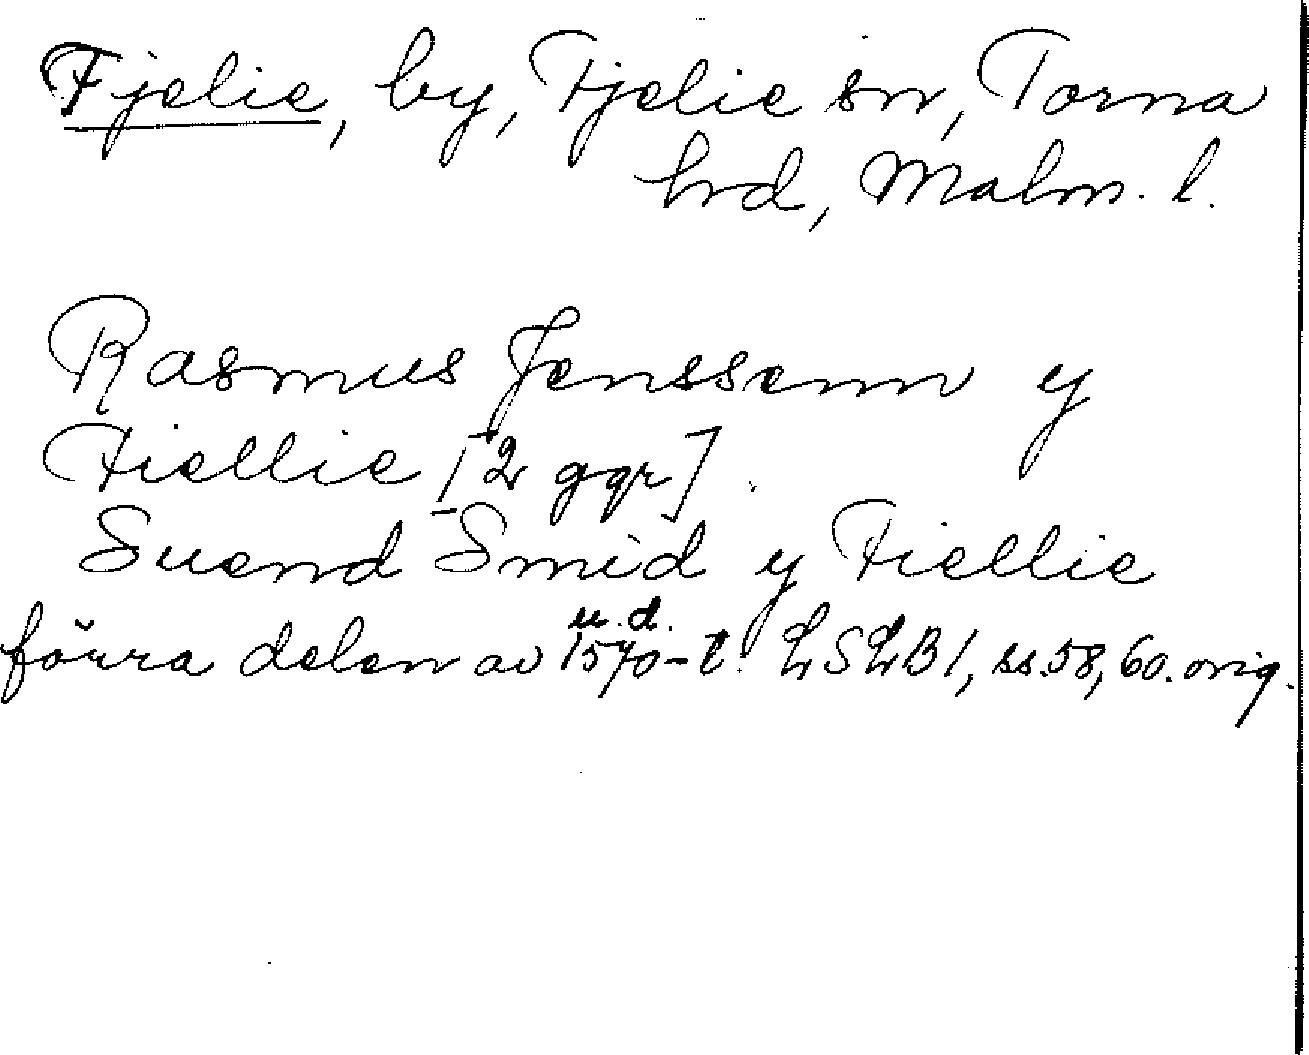 Fjelie, by, Fjelie sn, Torna
hrd, Malm. l.
Rasmus Jenssenn y
Fiellie [2 ggr]
Suend Smid y Fiellie
u. d.
förra delen av 1570-t. LSLB 1, ss. 58, 60. orig.